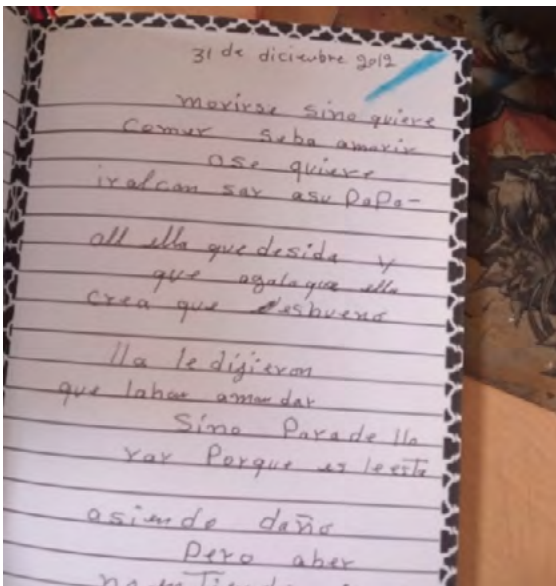 31 de diciembre 2012
morirse sino quiere
comer seba amorir
ose quiere
iralcan sar asu papa-
all ella que desida y
que agalaque ella
crea que esbueno
lla le digieron
que lahan amandar
Sino Parade lla
rar Porque es leeste
asiendo daño
Pero aber
no entiende